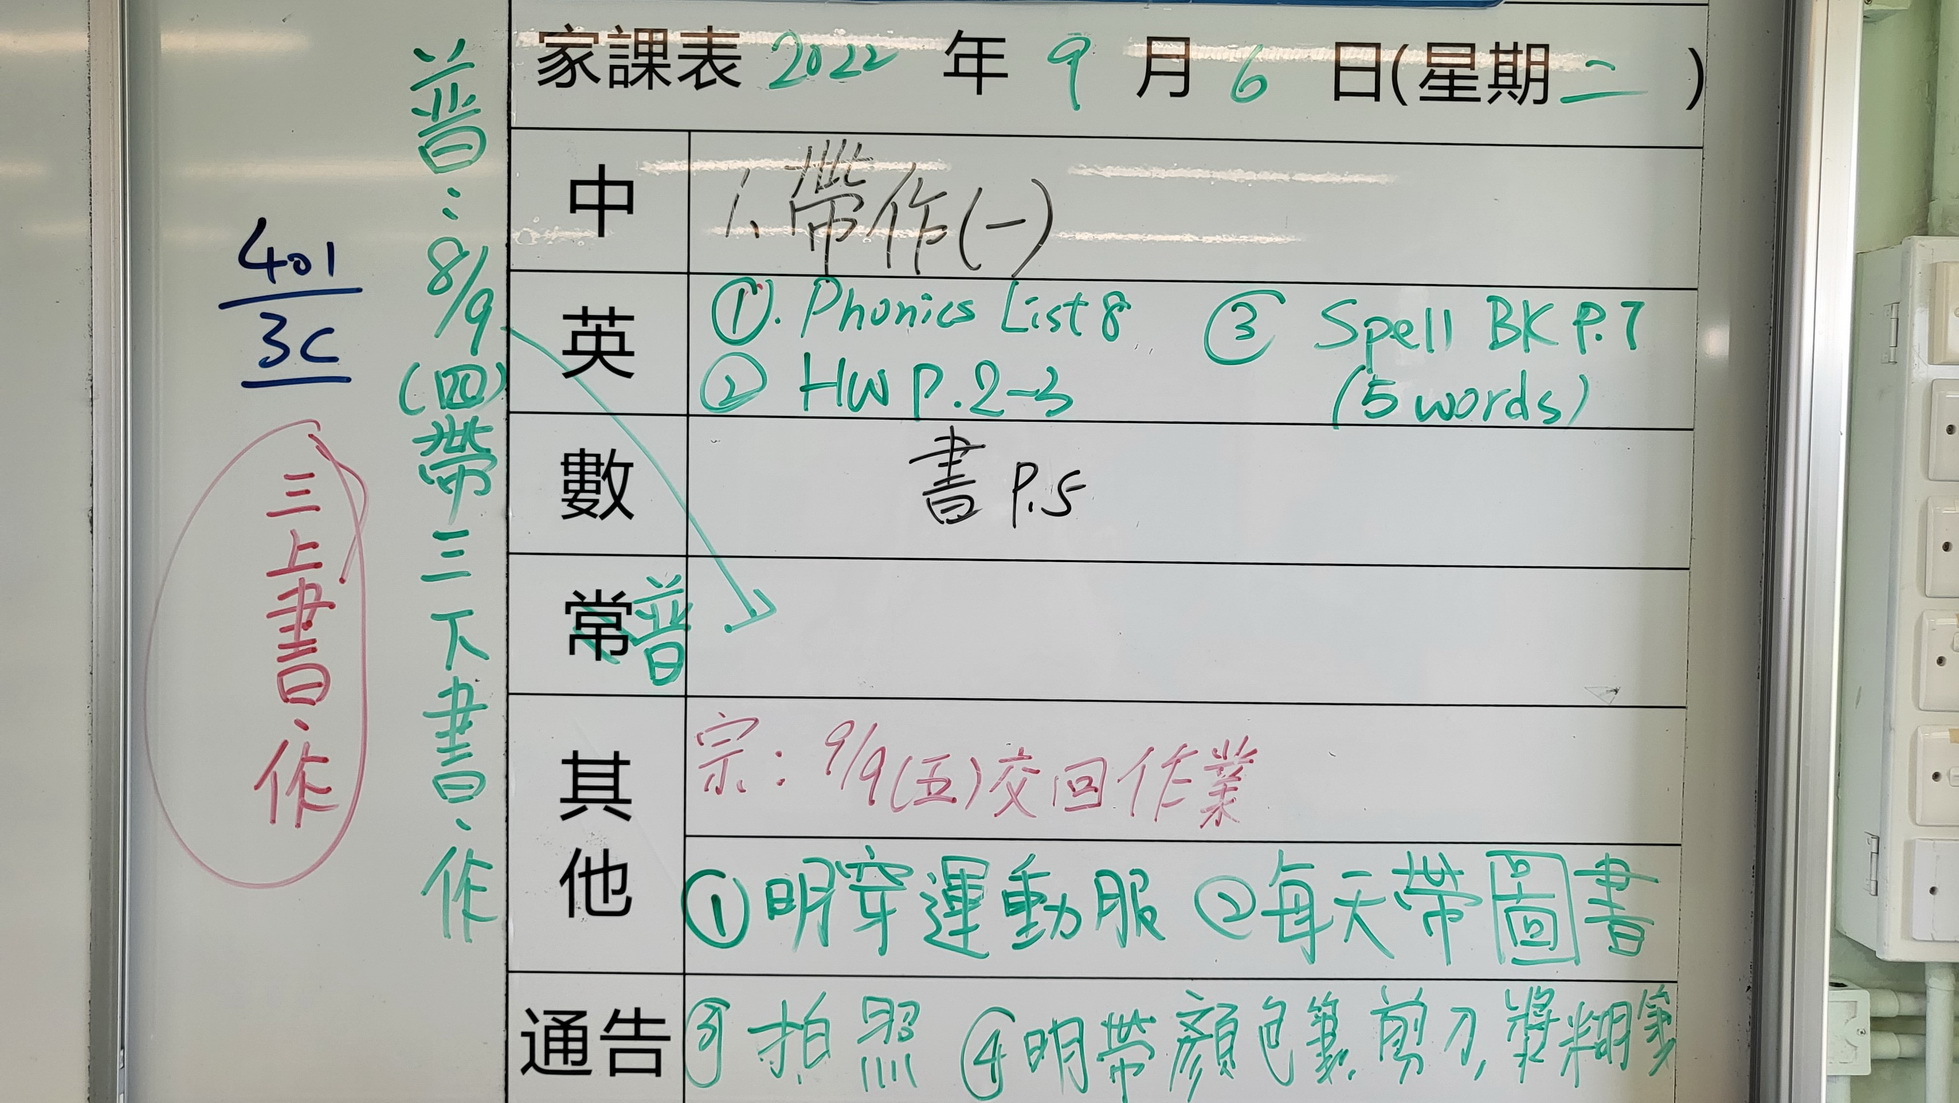 家課表 2022 年 9 月 6 日(星期二)
中 1、帶作(一)
英 ①. Phonics List 8 ③ Spell BK P.7
② HW P.2-3 (5 words)
數 書 P.5
常 普
其他 宗：9/9(五)交回作業
①明穿運動服 ②每天帶圖書
通告 ③拍照 ④明帶顏色筆,剪刀,漿糊筆
普：8/9(四)帶三下書、作
401
3C
三上書、作